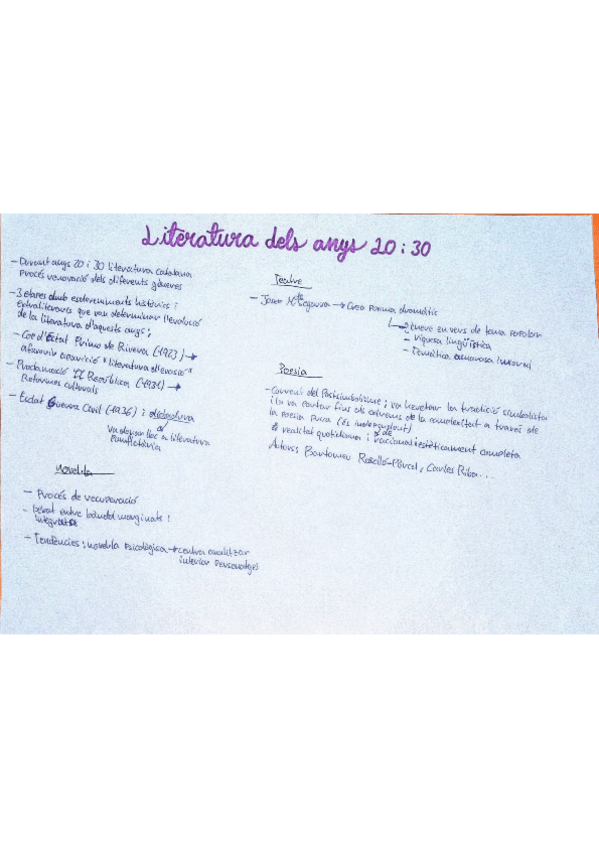 Literatura dels anys 20 i 30
- Durant anys 20 i 30 literatura catalana
procés renovació dels diferents gèneres
- 3 etapes amb esdeveniments històrics i
extraliteraris que van determinar l'evolució
de la literatura d'aquests anys:
- Cop d'Estat Primo de Rivera (1923) →
afavorir aparició "literatura d'evasió"
- Proclamació II República (1931) →
Reformes culturals
- Esclat Guerra Civil (1936) i
va donar lloc a literatura
Pamfletària
Novel·la
- Procés de recuperació
- Debat entre marginats i
integrats
- Tendències: novel·la psicològica → centra analitzar
interior personatges
Teatre
- Josep Mª Sagarra → Crea poema dramàtic
→ obra en vers de tema popular
- riquesa lingüística
- Temàtica amorosa
Poesia
- Corrent del Postsimbolisme: va heretar la tradició simbolista
i la va portar fins als extrems de la complexitat a través de
la poesia pura (és
realitat quotidiana i racional i estèticament completa
Autors: Bartomeu Rosselló-Pòrcel, Carles Riba...